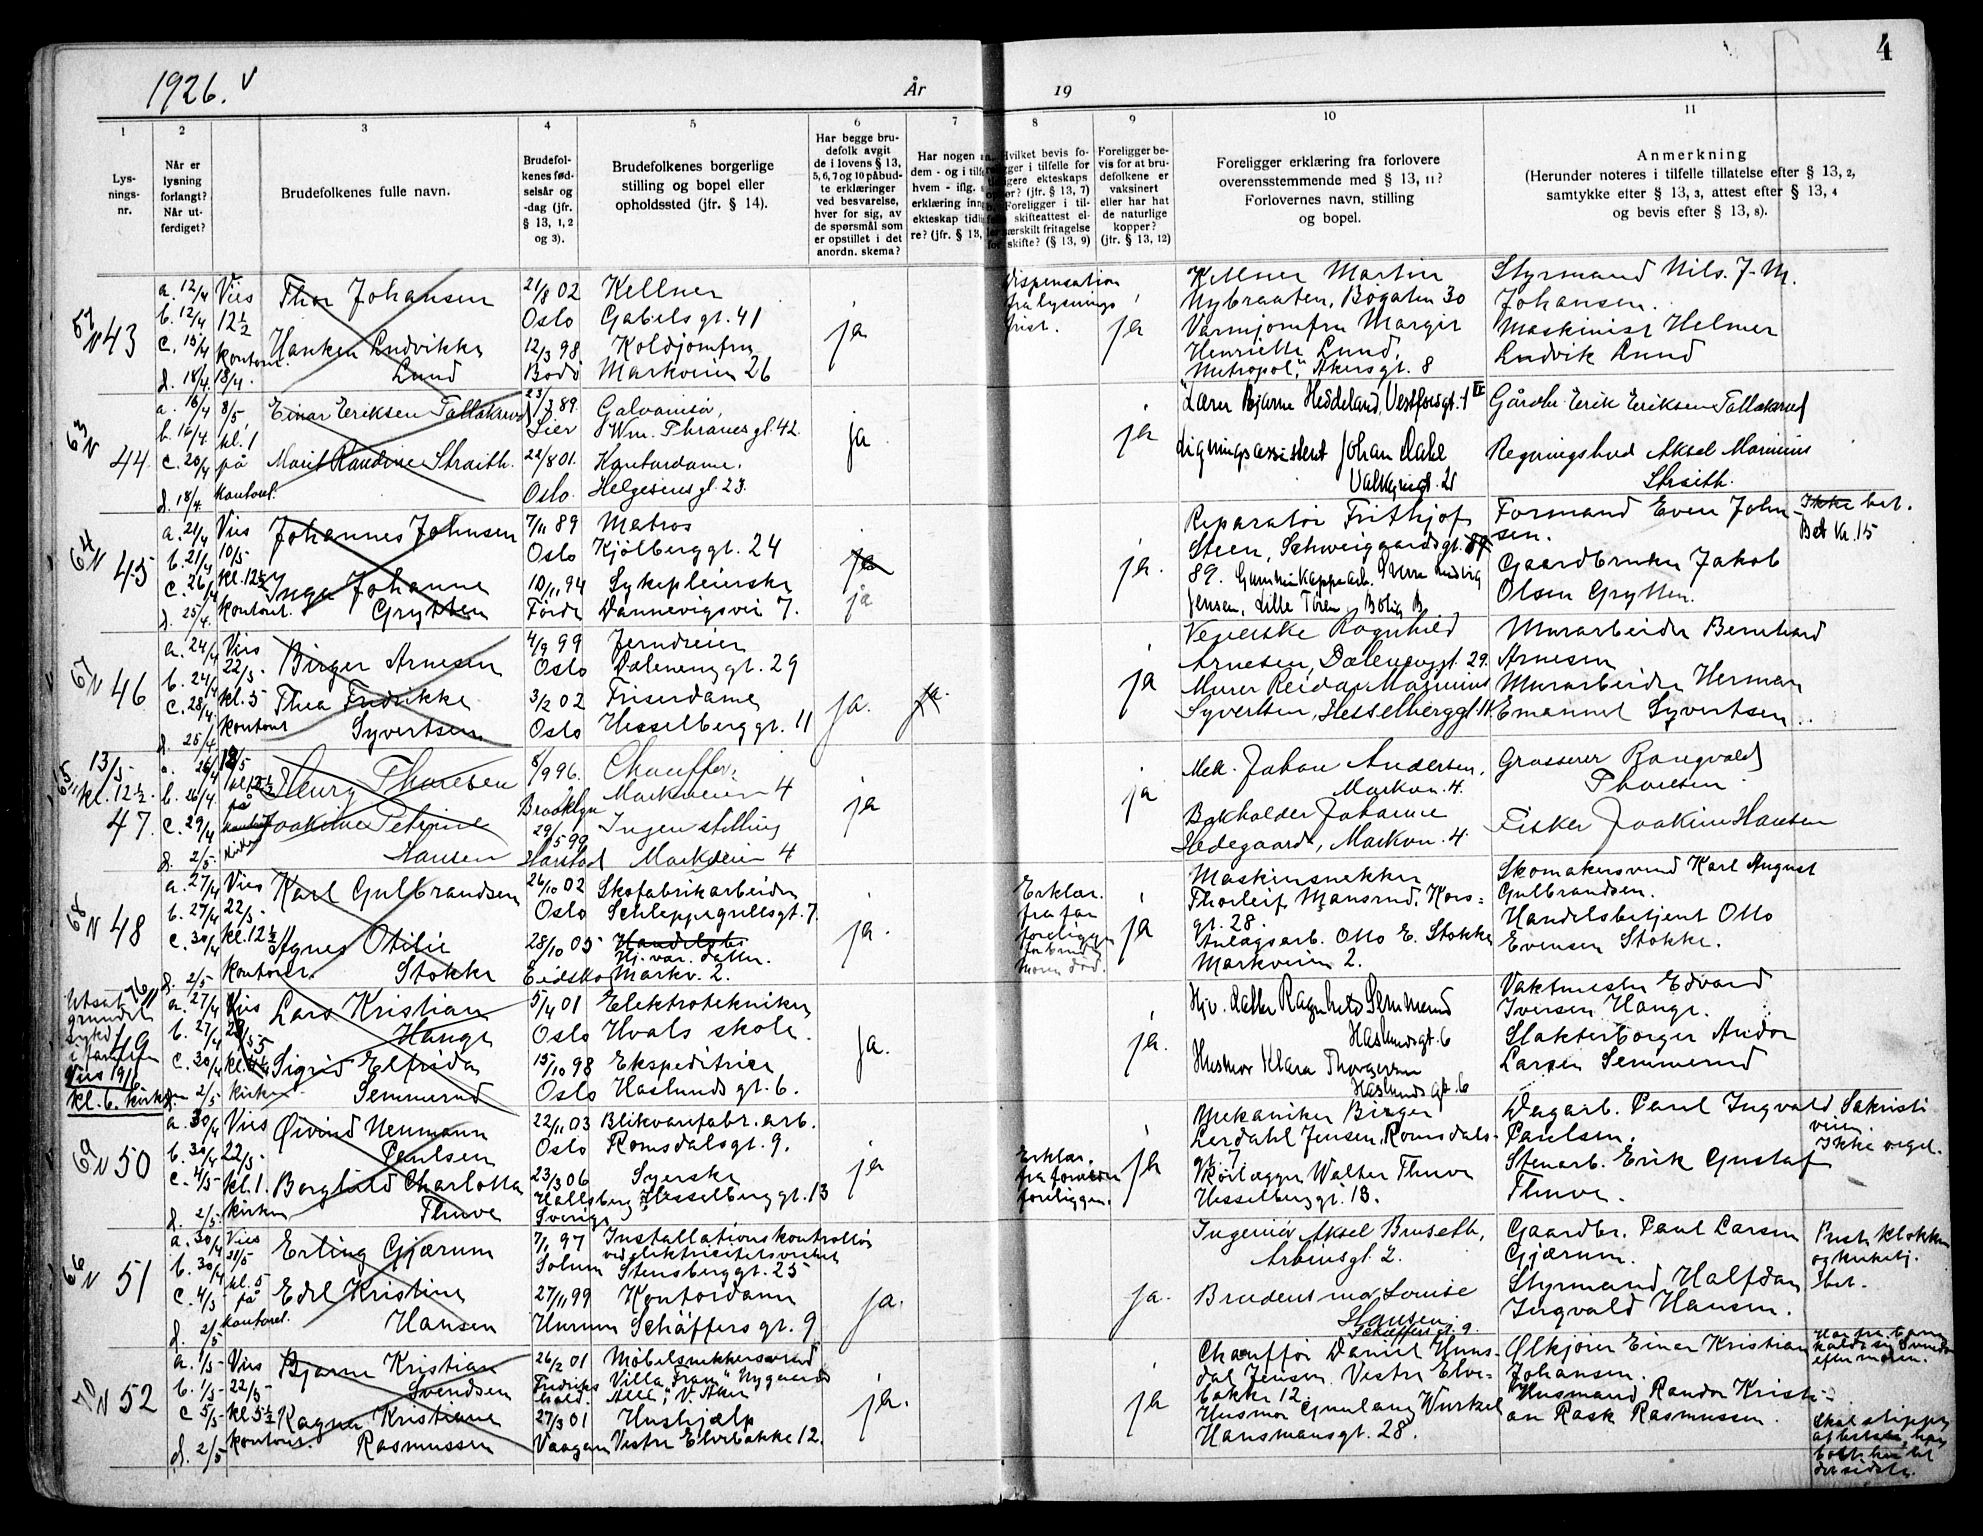 4
1926. v
År
19
1
2
3
4
5
6
7
8
9
10
11
Lys-
nings-
nr.
Når er
lysning
forlangt?
Når ut-
ferdiget?
Brudefolkenes fulle navn.
Brudefol-
kenes fød-
selsår og
-dag (jfr.
§ 13, 1, 2
og 3).
Brudefolkenes borgerlige
stilling og bopel eller
opholdssted (jfr. § 14).
Har begge bru-
defolk avgit
de i lovens § 13,
5, 6, 7 og 10 påbud-
te erklæringer
ved besvarelse,
hver for sig, av
de spørsmål som
er opstillet i det
anordn. skema?
Har nogen a
dem - og i tilf
hvem - iflg.
erklæring inng
ekteskap tidl
re? (jfr. § 13,
Hvilket bevis fo-
ligger i tilfelle for
ligere ekteskaps
ør? (jfr. § 13, 7)
Foreligger i til-
skifteattest el-
særskilt fritagelse
for skifte? (§ 13, 9)
Foreligger be-
vis for at bru-
defolkene er
vaksinert
eller har hat
de naturlige
kopper?
(jfr. § 13, 12)
Foreligger erklæring fra forlovere
overensstemmende med § 13, 11?
Forlovernes navn, stilling
og bopel.
Anmerkning
(Herunder noteres i tilfelle tillatelse efter § 13, 2,
samtykke efter § 13, 3, attest efter § 13, 4
og bevis efter § 13, 8).
57 N 43
a. 12/4 Vies
b. 12/4 12 1/2
c. 15/4 kontoret.
d. 18/4. 18/4.
Thor Johansen
Hanken Ludvikke
Lund
21/8 02
Oslo
12/3 98
Bodø
Kellner
Gabels gt. 41
Koldjomfru
Markveien 26
ja
Dispensation
fra lysnings
frist.
ja
Kellner Martin
Nybraaten, Bøgaten 30
Varmjomfru Margit
Henriette Lund,
"Metropol", Akersgt. 8
Styrmand Nils J. M.
Johansen.
Maskinist Helmer
Ludvik Lund
63 N 44
a. 16/4 8/5
b. 16/4. kl. 1
c. 20/4 på
d. 18/4. kontoret.
Einar Eriksen Tallaksrud
Marit Randine Straith.
23/3 89.
Lier
22/8 01.
Oslo.
Galvanisør,
Wm. Thranes gt. 42.
Kontordame.
Helgesens gt. 23.
ja
ja
Lærer Bjarne Heddeland, Vestfossgt. 1 IV
Ligningsassistent Johan Dahl
Valkyriegt. 21
Gårdbr. Erik Eriksen Tallaksrud
Regningsbud Aksel Marinius
Straith.
64 N 45
a. 21/4 Vies
b. 21/4 10/5
c. 26/4 kl. 12 1/2
d. 25/4. kontoret.
Johannes Johnsen
Inga Johanne
Grytten
7/11 89
Oslo
10/11 94
Førde
Matros
Kjølberggt. 24
Sykepleierske
Dannevigsvei 7.
ja
ja
ja.
Reparatør Frithjof
Steen, Schweigaardsgt. 89
89. Gummikappearb.
Jensen, Lille Tøien, Bolig B.
Formand Even John-
sen.
Gaardbruker Jakob
Olsen Grytten.
Ikke bet.
Bet kr. 15
67 N 46
a. 24/4 Vies
b. 24/4 22/5.
c. 28/4. kl. 5
d. 25/4 kontoret
Birger Arnesen
Thea Fredrikke
Syvertsen
4/9 99
Oslo
3/2 02
Oslo
Jerndreier
Dælenenggt. 29
Friserdame
Hesselberggt. 11
ja.
ja.
ja
Veverske Ragnhild
Arnesen, Dælenenggt. 29.
Murer Reidar Marinius
Syvertsen, Hesselberggt 11.
Murarbeider Bernhard
Arnesen
Murarbeider Herman
Emanuel Syvertsen.
65 13/5
kl. 12 1/2.
47.
a. 26/4 12/5
b. 26/4. kl 12 1/2
c. 29/4 på
d. 2/5. kontoret
kirken
Henry Thoresen
Joakime Petrine
Hansen
8/9 96.
Brooklyn
29/5 99
Harstad
Chauffør,
Markveien 4
Ingen stilling
Markveien 4
ja
ja
Mek. Johan Andersen,
Markvn. 4.
Bokholder Johanne
Hedegaard, Markvn. 4.
Grosserer Rangvald
Thoresen
Fisker Joakim Hansen
68 N 48
a. 27/4 Vies
b. 27/4 22/5.
c. 30/4 kl. 12 1/2
d. 2/5 kontoret.
Karl Gulbrandsen
Agnes Otilie
Stokke
26/10 02
Oslo
28/10 05
Eidsko
Skofabrikarbeider
Schleppegrellsgt. 7.
Handelsbe
Hj. vær. datter.
Markv. 2.
ja.
Erklær.
fra far
foreligger
for brud
moren død.
ja
Maskinsnekker
Thorleif Mansrud, Kors-
gt. 28.
Anlagsarb. Otto E. Stokke
Markveien 2.
Skomakersvend Karl August
Gulbrandsen.
Handelsbetjent Otto
Evensen Stokke.
Utsat 76
grundet
sykd. 49
i familien
Vies 19/6
kl. 6. kirken
a. 27/4 Vies
b. 27/4
c. 30/4
d. 2/5. kirken
Lars Kristian
Hauge
Sigrid Elfrida
Semmerud
5/4 01
Oslo
15/10 98
Oslo
Elektrotekniker
Hvals skole.
Ekspeditrice
Haslunds gt. 6.
ja.
ja.
Hjv. datter Ragnhild Semmerud
Haslundsgt. 6
Husmor Klara Thorgersen
Haslunds gt. 6
Vaktmester Edvard
Iversen Hauge.
Slakterborger Andor
Larsen Semmerud
69 N 50
a. 30/4 Vies
b. 30/4 22/5.
c. 4/5- kl. 1.
d. 2/5 kirken
Øivind Neumann
Paulsen
Borghild Charlotta
Thuve
22/11 03
Oslo
23/3 06
Hallsberg
Sverige
Blikvarefabr. arb.
Romsdalsgt. 9.
Syerske
Hesselberggt. 13
ja
Erklær.
fra forældre
foreligger.
ja
Mekaniker Birger
Lerdahl Jensen, Romsdals-
gt. 7
Rørlægger Walter Thuve
Hesselberg gt. 13.
Dagarb. Paul Ingvald
Paulsen.
Stenarb. Erik Gustaf
Thuve.
Sakristi
veien.
Ikke orgel.
66 N 51
a. 30/4 Vies
b. 30/4 21/5
c. 4/5 kl. 5
d. 2/5 på kontoret.
Erling Gjærum
Edel Kristine
Hansen
7/1 97
Solum
27/11 99
Hurum
Installationskontrollør
ved elektricitetsverket
Stensberggt. 25
Kontordame
Schäffers gt. 9
ja.
ja.
Ingeniør Aksel Bruseth,
Arbinsgt. 2.
Brudens mor Louise
Hansen,
Schæffersgt. 9.
Gaardbr. Paul Larsen
Gjærum.
Styrmand Halfdan
Ingvald Hansen.
Prest, klokker
og kirketj.
bet.
70 N 52
a. 1/5- Vies
b. 1/5- 22/5-
c 5/5- kl. 5 1/2
d. 2/5 kontoret.
Bjarne Kristian
Svendsen
Ragna Kristiane
Rasmussen
26/2 01
Fredriks
hald.
27/3 01
Vaagan
Møbelsnekkersvend
Villa "Fram" Nygaards
Allé, V. Aker
Hushjælp
Vestre Elvebakke 12.
ja.
ja
Chauffør Daniel Huns-
dal Jensen, Vestre Elve-
bakke 12
Husmor Gunlaug Wurtzel
Hansmansgt. 28.
Ølkjører Einar Kristian
Johansen.
Husmand Randor Kristi-
an Rask Rasmussen.
efter moren.
Skal slippe